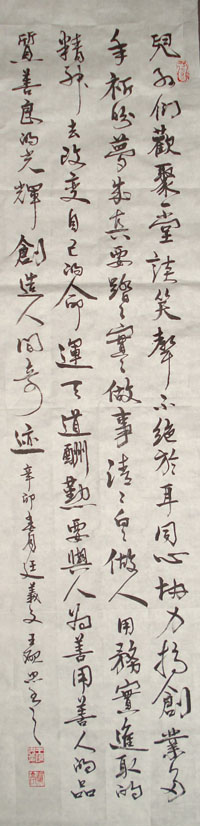 兒孙們歡聚一堂談笑聲不絕於耳同心協力搞創業多
年祈盼夢成真要踏々實々做事清々白々做人用務實進取的
精神去改變自己的命運天道酬勤要與人為善用善人的品
質善良的光輝創造人間奇迹辛卯春月廷義文王